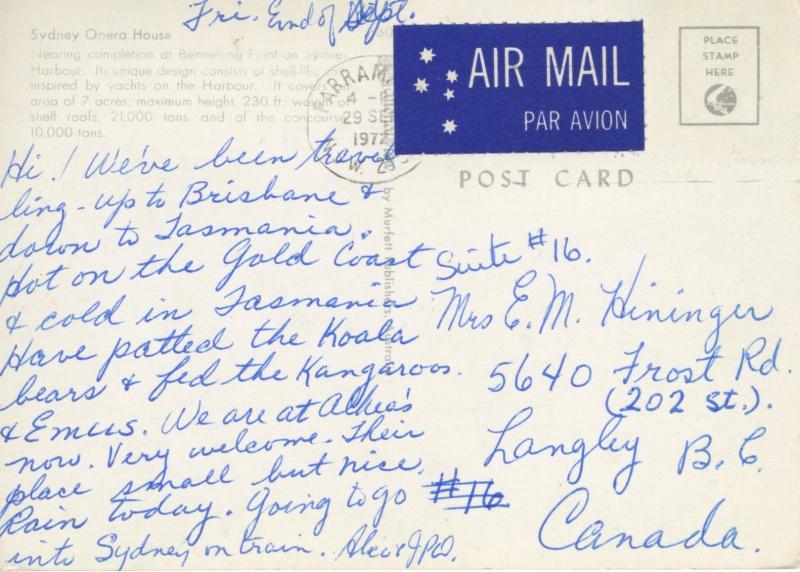 Fri. End of Sept.
Sydney Opera House
Nearing completion at Bennelong Point on Sydney
Harbour. Its unique design consists of shell-like
inspired by yachts on the Harbour. It covers
area of 7 acres; maximum height, 230 ft.; weight of
shell roofs, 21,000 tons, and of the concourse
10,000 tons.
PARRAMA
4 -
29 SE
1972
W.
AIR MAIL
PAR AVION
PLACE
STAMP
HERE
POST CARD
by Murfett Publishers,
Hi! We've been travel
ling - up to Brisbane &
down to Tasmania.
Hot on the Gold Coast
& cold in Tasmania
Have patted the Koala
bears & fed the Kangaroos.
& Emus. We are at
now. Very welcome. Their
place small but nice.
Rain today. Going to go
into Sydney on train.
Suite #16.
Mrs E. M. Hininger
5640 Frost Rd.
(202 St.).
Langley B.C.
#16
Canada.